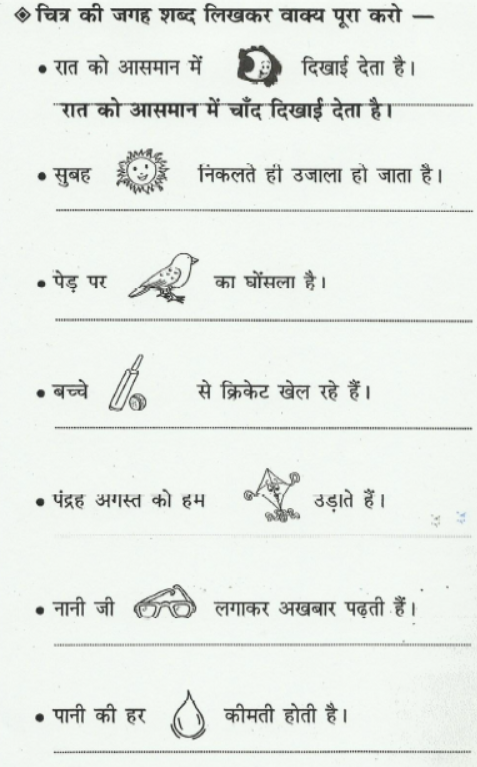 ❖ चित्र की जगह शब्द लिखकर वाक्य पूरा करो —
• रात को आसमान में दिखाई देता है।
रात को आसमान में चाँद दिखाई देता है।
• सुबह निकलते ही उजाला हो जाता है।
• पेड़ पर का घोंसला है।
• बच्चे से क्रिकेट खेल रहे हैं।
• पंद्रह अगस्त को हम उड़ाते हैं।
• नानी जी लगाकर अखबार पढ़ती हैं।
• पानी की हर कीमती होती है।